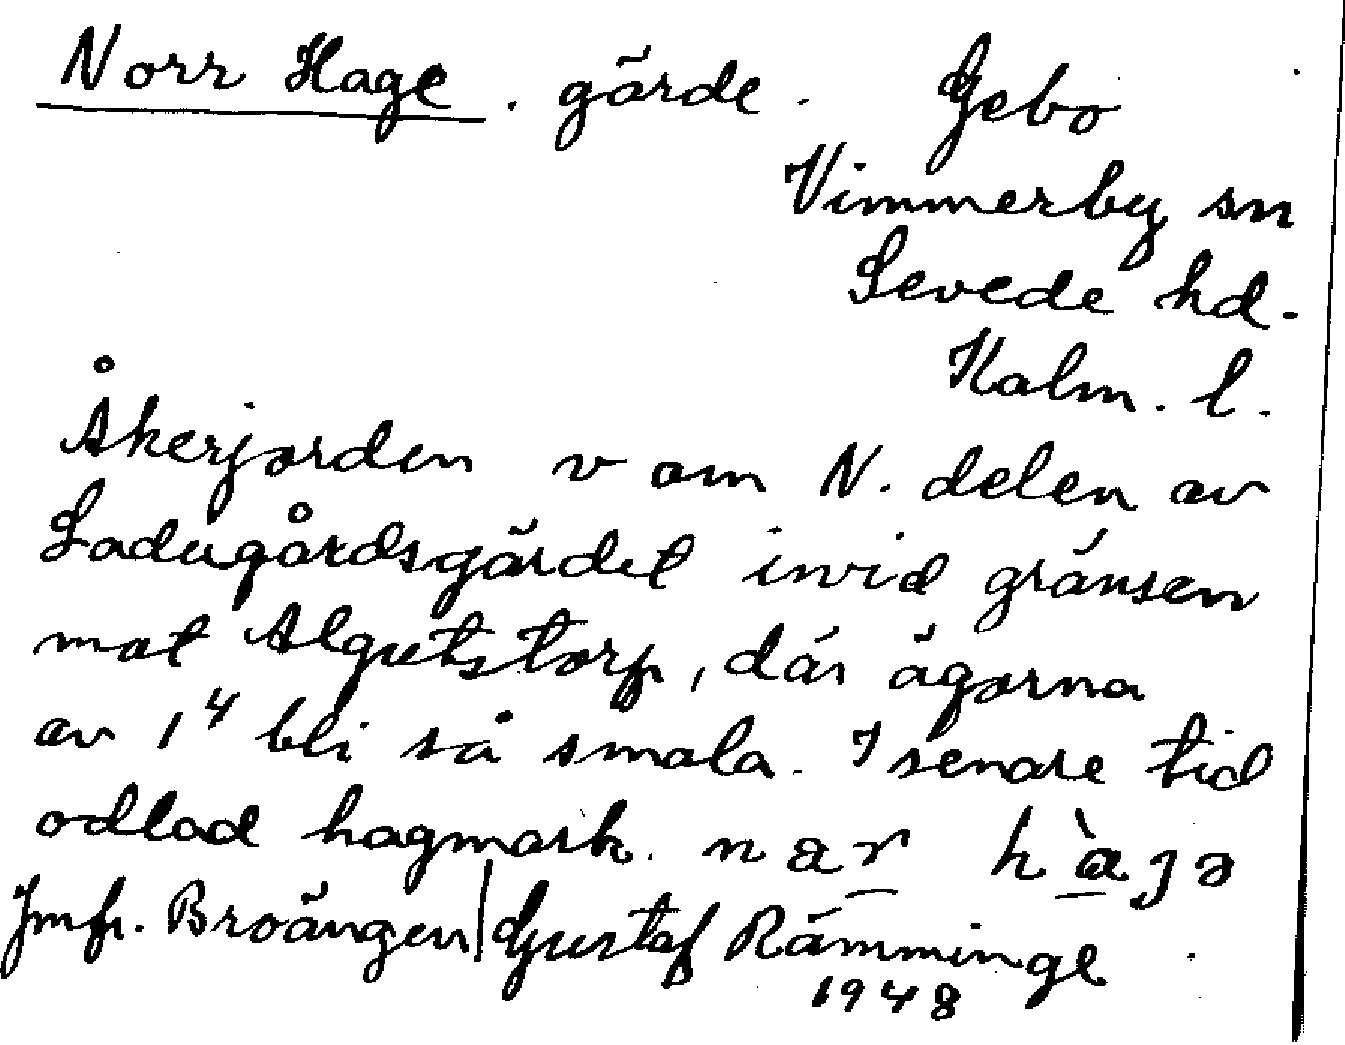 Norr Hage. gärde. Gebo
Vimmerby sn
Sevede hd.
Kalm. l.
Åkerjorden v om N. delen av
Ladugårdsgärdet invid gränsen
mot Algutstorp, där ägorna
av 1⁴ bli så smala. I senare tid
odlad hagmark. nar hàgə
Jmfr. Broängen/Gustaf Rämminge
1948